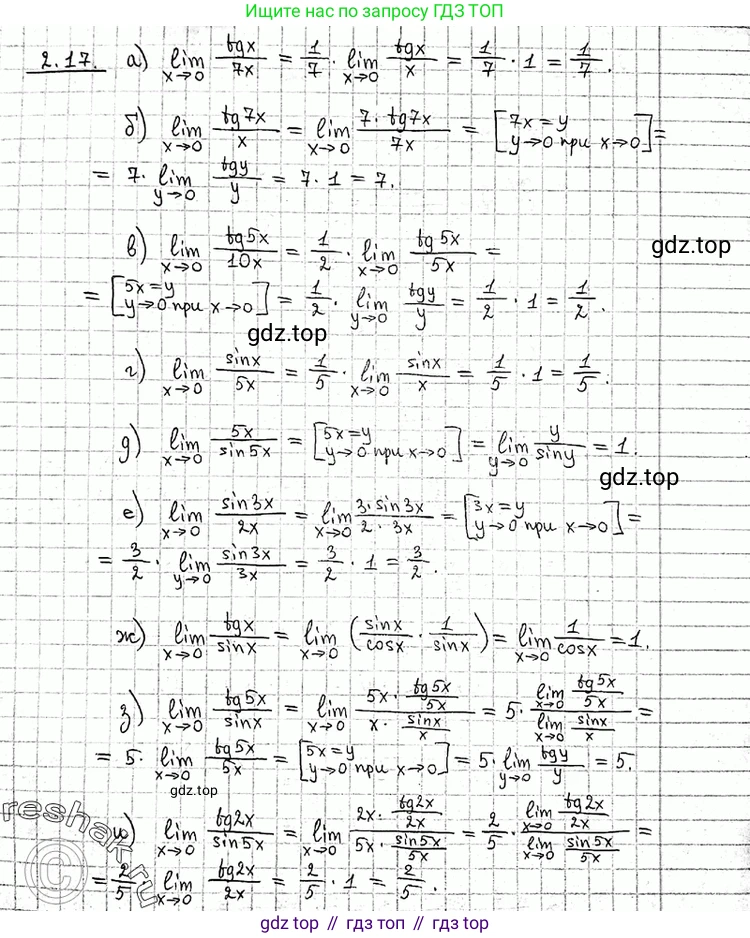 Ищите нас в поиске по запросу ГДЗ ТОП
2.17. а) lim x→0 tgx/7x = 1/7 · lim x→0 tgx/x = 1/7 · 1 = 1/7.
б) lim x→0 tg7x/x = lim x→0 7·tg7x/7x = [7x=y y→0 при x→0] =
= 7· lim y→0 tgy/y = 7·1 = 7.
в) lim x→0 tg5x/10x = 1/2 · lim x→0 tg5x/5x =
gdz.top
= [5x=y y→0 при x→0] = 1/2 · lim y→0 tgy/y = 1/2 · 1 = 1/2.
gdz.top
г) lim x→0 sinx/5x = 1/5 · lim x→0 sinx/x = 1/5 · 1 = 1/5.
д) lim x→0 5x/sin5x = [5x=y y→0 при x→0] = lim y→0 y/siny = 1.
gdz.top
е) lim x→0 sin3x/2x = lim x→0 3·sin3x/2·3x = [3x=y y→0 при x→0] =
= 3/2 · lim y→0 sin3x/3x = 3/2 · 1 = 3/2.
ж) lim x→0 tgx/sinx = lim x→0 (sinx/cosx · 1/sinx) = lim x→0 1/cosx = 1.
з) lim x→0 tg5x/sinx = lim x→0 (5x · tg5x/5x)/(x · sinx/x) = 5 · (lim x→0 tg5x/5x)/(lim x→0 sinx/x) =
= 5· lim x→0 tg5x/5x = [5x=y y→0 при x→0] = 5· lim y→0 tgy/y = 5.
gdz.top
и) lim x→0 tg2x/sin5x = lim x→0 (2x · tg2x/2x)/(5x · sin5x/5x) = 2/5 · (lim x→0 tg2x/2x)/(lim x→0 sin5x/5x) =
= 2/5 lim x→0 tg2x/2x = 2/5 · 1 = 2/5.
reshak.ru
©
gdz top // гдз топ // gdz.top